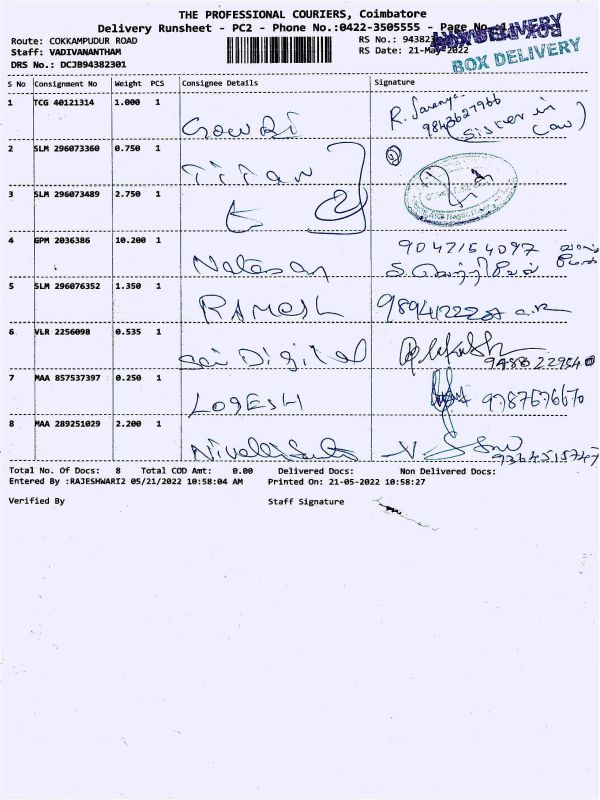 THE PROFESSIONAL COURIERS, Coimbatore
Delivery Runsheet - PC2 - Phone No.:0422-3505555 - Page No.
BOX DELIVERY
Route: COKKAMPUDUR ROAD RS No.: 94382
Staff: VADIVANANTHAM RS Date: 21-May-2022
DRS No.: DCJB94382301
BOX DELIVERY
S No Consignment No Weight PCS Consignee Details Signature
1 TCG 40121314 1.000 1 Gowri R. Saranya
9843627966
(Sister in Law)
2 SLM 296073360 0.750 1 Titan
3 SLM 296073489 2.750 1
4 GPM 2036386 10.200 1 Natesan 9047154097
5 SLM 296076352 1.350 1 RAMESH
6 VLR 2256098 0.535 1 Sai Digital
7 MAA 857537397 0.250 1 LOGESH 9787676670
8 MAA 289251029 2.200 1 9364515747
Total No. Of Docs: 8 Total COD Amt: 0.00 Delivered Docs: Non Delivered Docs:
Entered By :RAJESHWARI2 05/21/2022 10:58:04 AM Printed On: 21-05-2022 10:58:27
Verified By Staff Signature